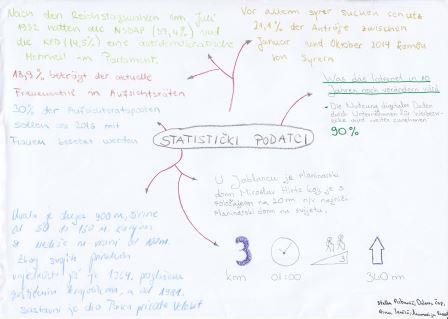 Nach den Reichstagwahlen im Juli
1932 hatten die NSDAP (37,4%) und
die KPD (14,5%) eine antidemokratische
Mehrheit im Parlament.
Vor allem Syrer suchen Schutz
21,1% der Anträge zwischen
Januar und Oktober 2014 kamen
von Syrern
18,9% beträgt der aktuelle
Frauenanteil in Aufsichtsräten
30% der Aufsichtsratsposten
sollen ab 2016 mit
Frauen besetzt werden
Was das Internet in 10
Jahren noch verändern wird
- Die Nutzung digitaler Daten
durch Unternehmen für
wird weiter zunehmen
90%
STATISTIČKI PODATCI
U Jablancu je planinarski
dom Miroslav Hirtz koji je s
položajem na 20 m n/v najniži
planinarski dom na svijetu.
Uvala je duga 900 m, širine
od 50 do 150 m, kanjon
se nadvio na visini od
Zbog svojih
vrijednosti je 1964. proglašena
zaštićenim krajolikom, a od 1981.
sastavni je dio Parka prirode Velebit
3
km
01:00
3
360 m